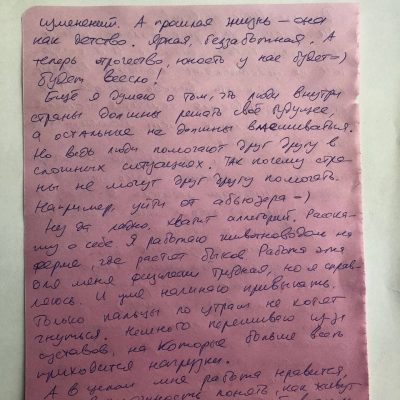 изменений. А прошлая жизнь – она
как детство. Яркая, беззаботная. А
теперь отрочество, юность у нас будет =)
Будет весело!
Ещё я думаю о том, что люди внутри
страны должны решать своё будущее,
а остальные не должны вмешиваться.
Но ведь люди помогают друг другу в
сложных ситуациях. Так почему стра-
ны не могут друг другу помогать.
Например, уйти от абьюзера =)
Ну да ладно, хватит аллегорий. Расска-
жу о себе. Я работаю животноводом на
ферме, где растят быков. Работа эта
для меня физически трудная, но я справ-
ляюсь. И уже начинаю привыкать.
Только пальцы по утрам не хотят
гнуться. Немного переживаю из-за
суставов, на которые больше всего
приходится нагрузки.
А в целом мне работа нравится,
понять, как живут